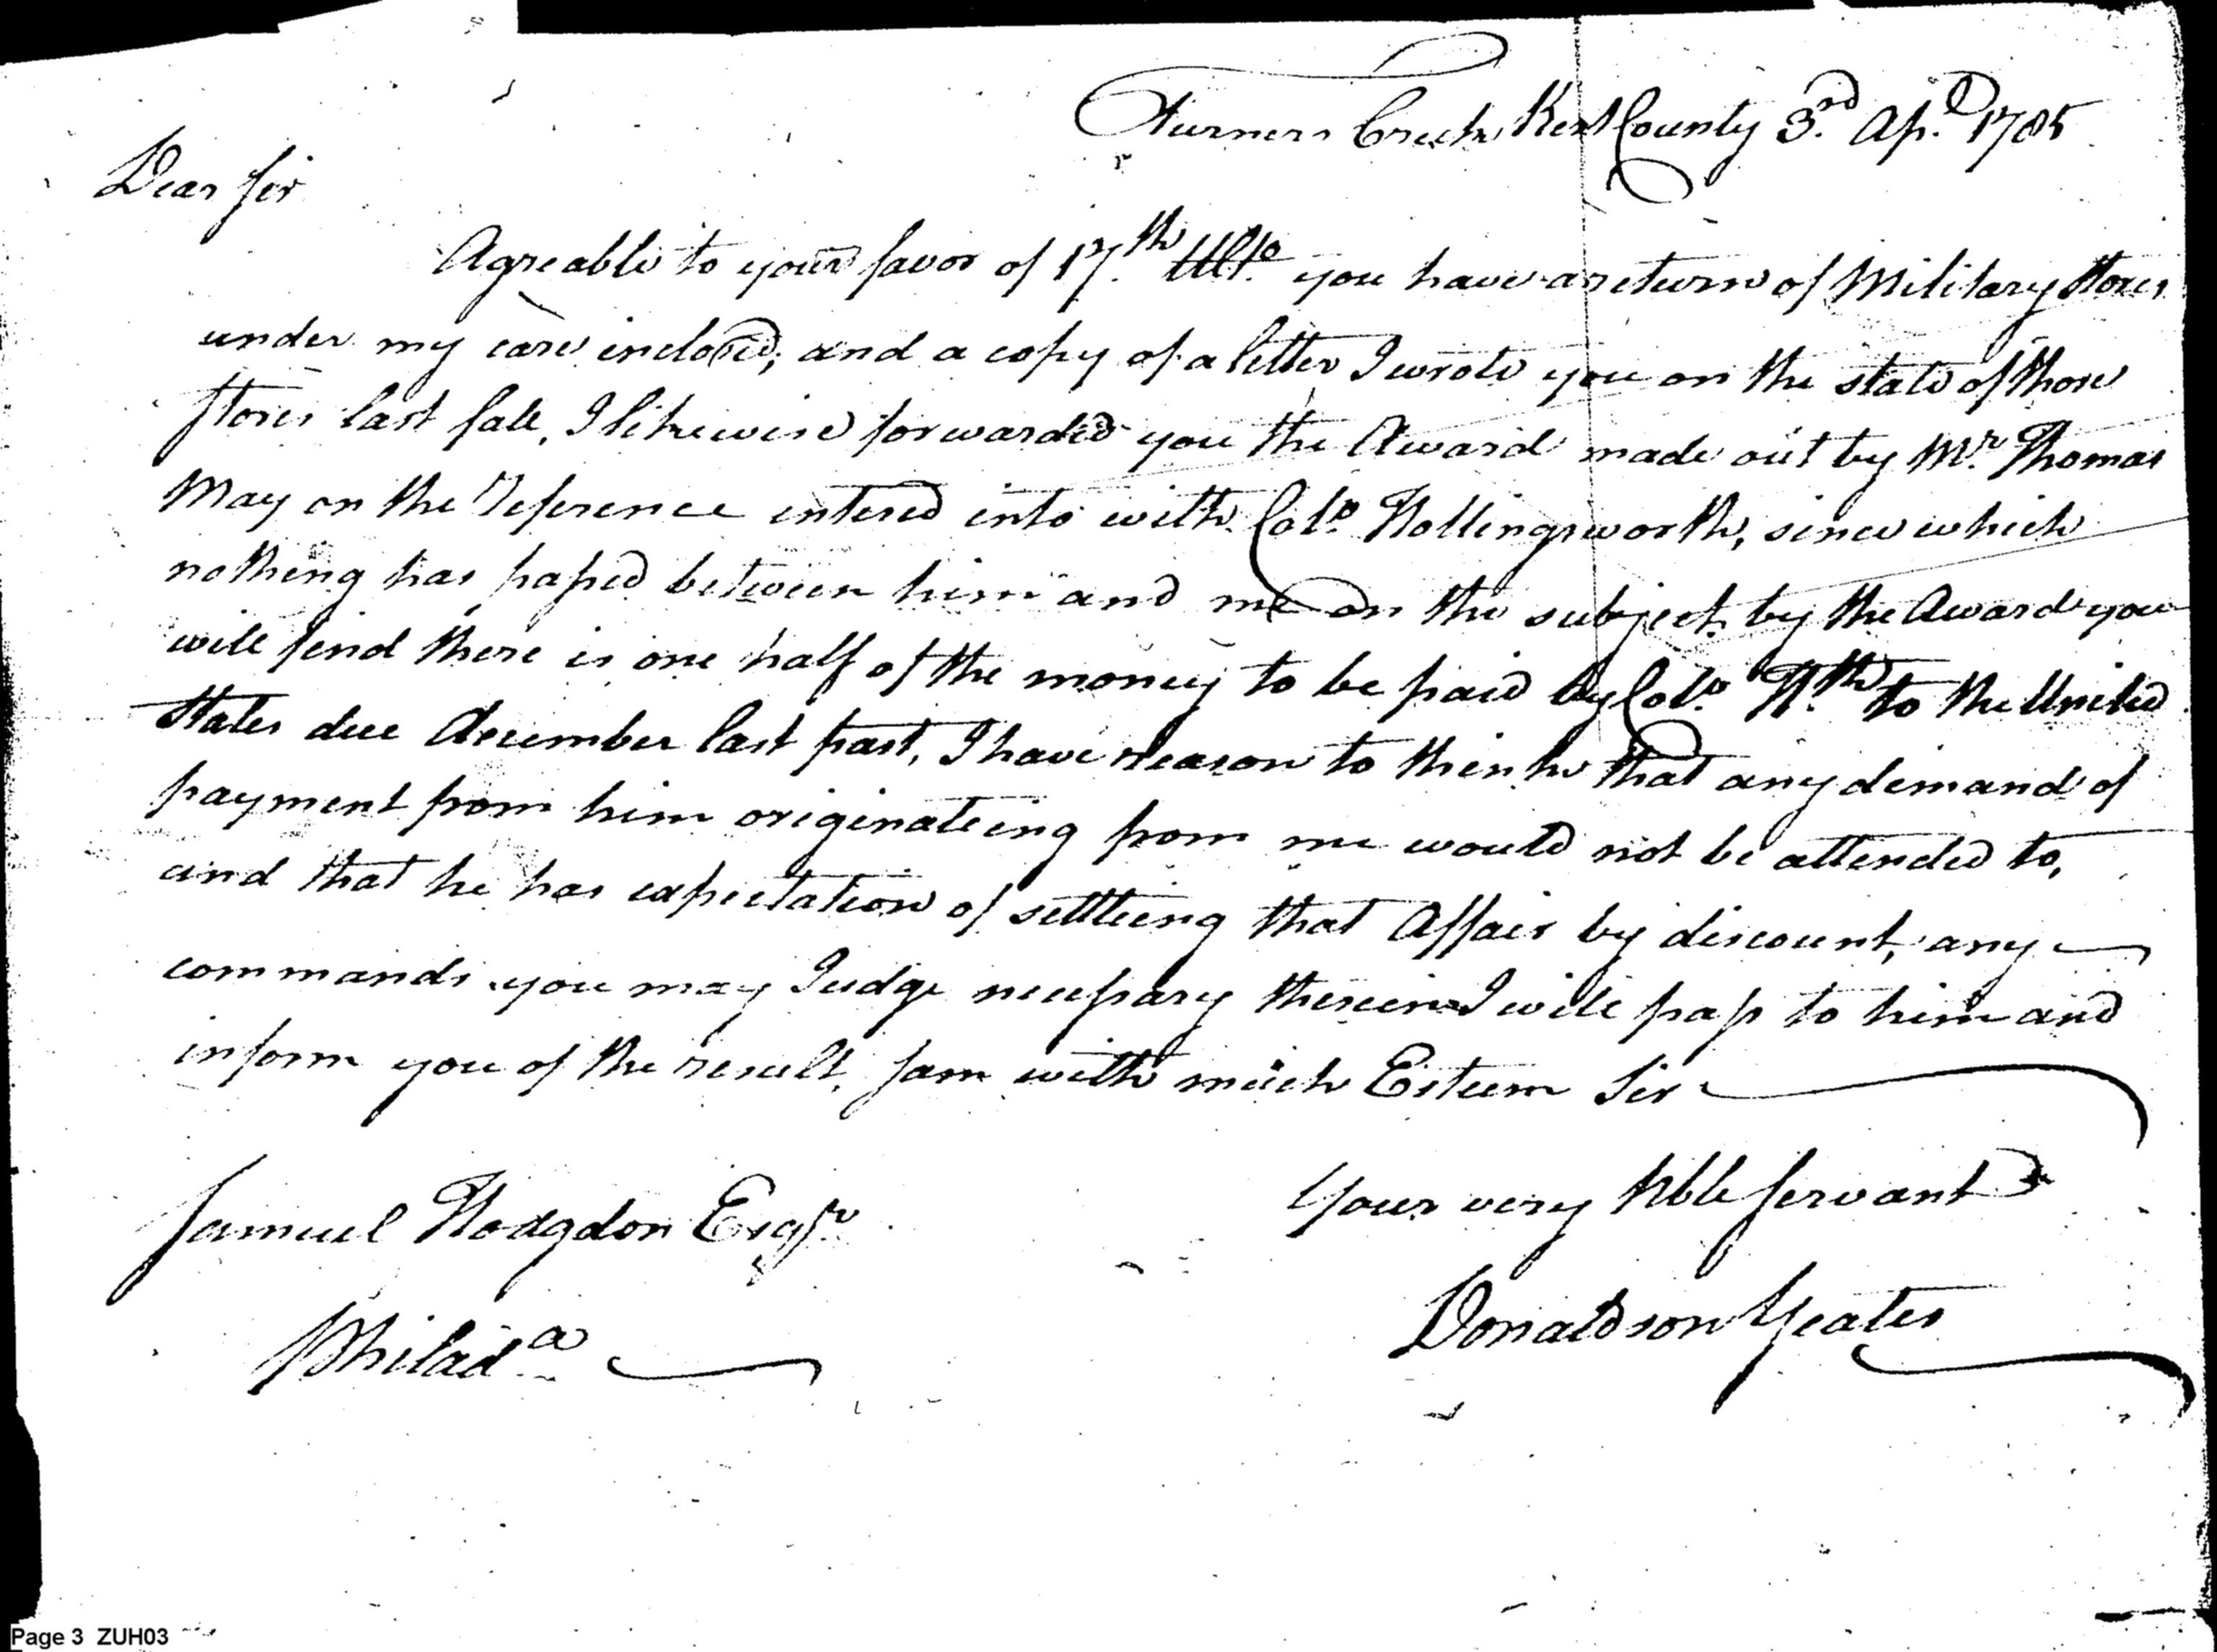 Turners Creek Kent County 3.rd Ap.l 1785
Dear Sir
Agreable to your favor of 17.th Ulto. you have a return of Military Stores
under my care inclosed, and a copy of a letter I wrote you on the state of those
Stores last fall, I likewise forwarded you the Award made out by Mr. Thomas
May on the reference entered into with Colo. Hollingsworth, since which
nothing has passed between him and me on the subject. by the Award you
will find there is one half of the money to be paid by Colo. H.th to the United
States due December last past, I have reason to think that any demand of
payment from him originateing from me would not be attended to,
and that he has expectation of settleing that Affair by discount, any
commands you may Judge necessary therein I will pass to him and
inform you of the result, I am with much Esteem Sir
Your very Hble Servant
Samuel Hodgdon Esqr.
Donaldson Yeates
Philad.a
Page 3 ZUH03